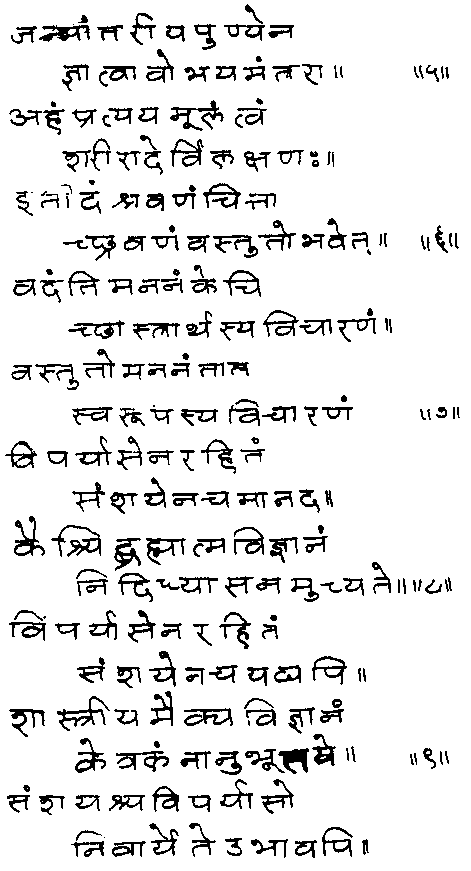 जन्मांतरीयपुण्येन
ज्ञात्वावोभयमंतरा॥ ॥५॥
अहंप्रत्ययमूलंत्वं
शरीरादेर्विलक्षणः॥
इतीदंश्रवणंचित्ता
च्छ्रवणंवस्तुतोभवेत्॥ ॥६॥
वदंतिमननंकेचि
च्छास्त्रार्थस्यविचारणं॥
वस्तुतोमननंतात
स्वरूपस्यविचारणं ॥७॥
विपर्यासेनरहितं
संशयेनचमानद॥
कैश्चिद्ब्रह्मात्मविज्ञानं
निदिध्यासनमुच्यते॥॥८॥
विपर्यासेनरहितं
संशयेनचयद्यपि॥
शास्त्रीयमैक्यविज्ञानं
केवलंनानुभूतये॥ ॥९॥
संशयश्चविपर्यासो
निवार्येतेउभावपि॥